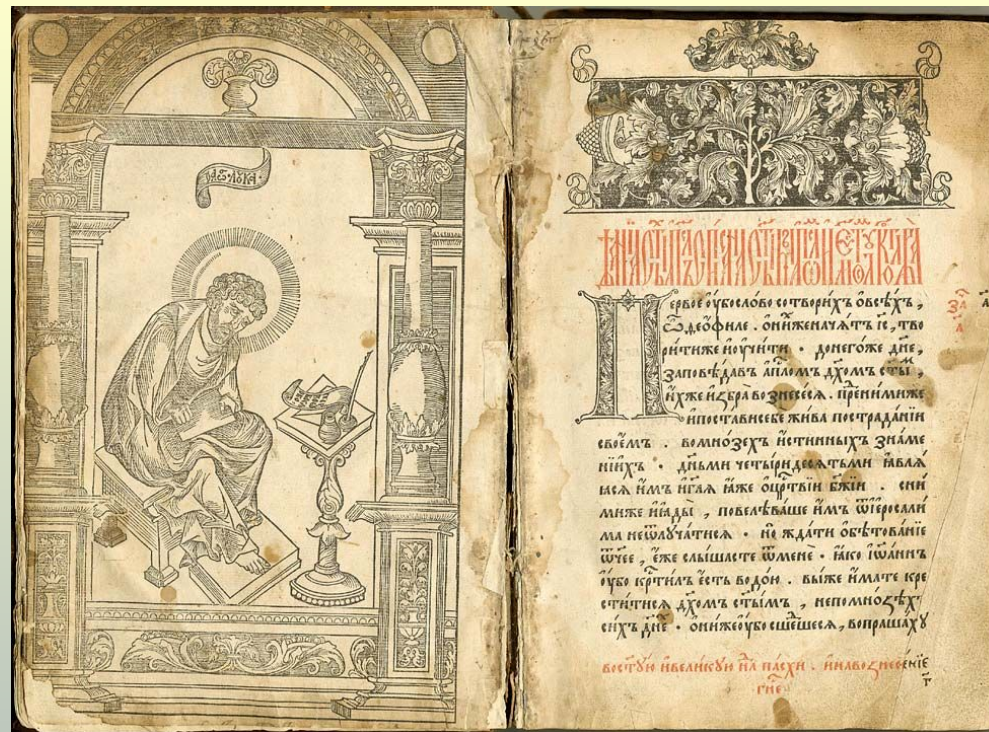 лꙋка
Первое оубо слово сотворихъ о всѣхъ ,
ѽ ѳеофиле . о ниже начатъ іс , тво
рити же и оучити . до негоже дне ,
заповѣдавъ апломъ дхомъ сты ,
ихже избра вознесеся . пре ними же
и постави себе жива по страданіи
своемъ . во мнозехъ истинныхъ зна́ме
ніихъ . дньми четыридесятьми ꙗвлѧ
ꙗсѧ имъ и глѧ ꙗже о цртвіи бжіи . с ни
миже и ꙗды , повелѣваше имъ ѿ іеросали
ма не ѿлучатисѧ . но ждати обѣтованіе
ѿчее , еже слышасте ѿ мене . ꙗко іѡаннъ
оубо кртилъ есть водою . вы же имате кре
ститисѧ дхомъ стымъ , не по мнозѣхъ
сихъ дне . они же оубо сшешесѧ , вопрашахꙋ
во стꙋю и великꙋю нлѧ пасхи . и на вознесеніе
гне